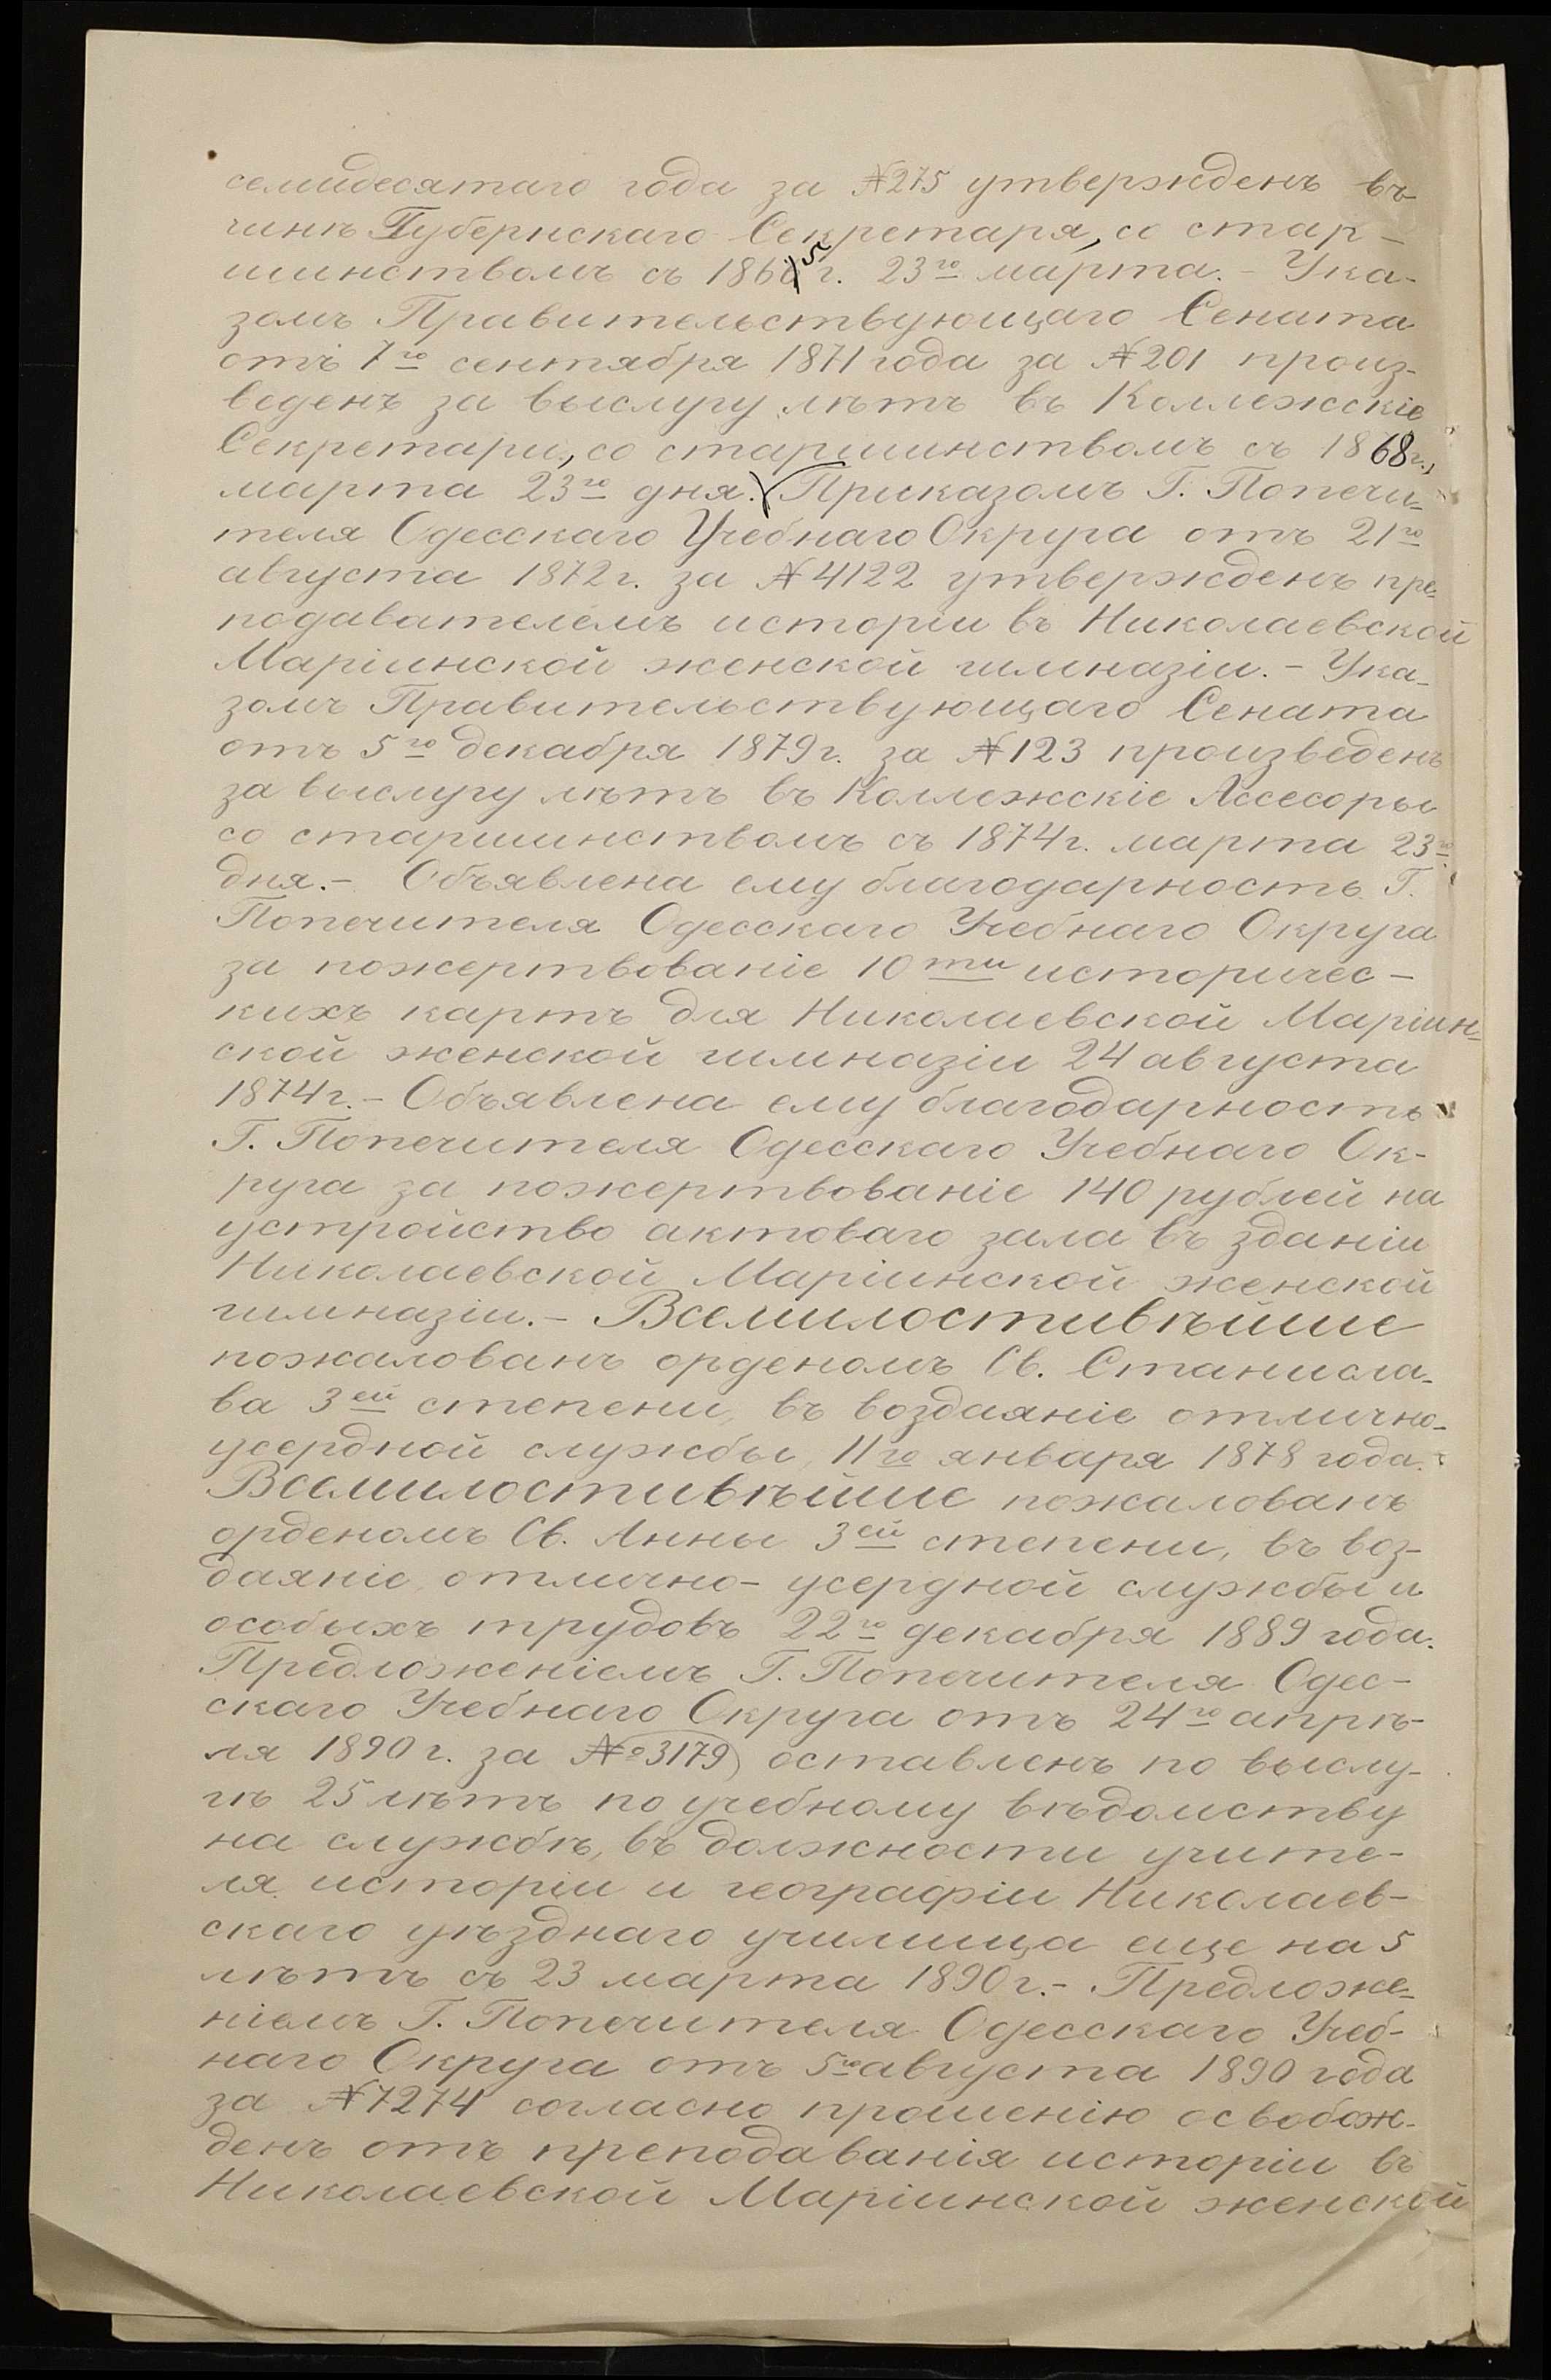 семидесятаго года за №275 утвержденъ въ
чинѣ Губернскаго Секретаря, со стар-
шинствомъ съ 1865 г. 23го марта. - Ука-
зомъ Правительствующаго Сената
отъ 7го сентября 1871 года за №201 произ-
веденъ за выслугу лѣтъ въ Коллежскіе
Секретари, со старшинствомъ съ 1868 г.,
марта 23го дня. Приказомъ Г. Попечи-
теля Одесскаго Учебнаго Округа отъ 21го
августа 1872 г. за №4122 утвержденъ пре-
подавателемъ исторіи въ Николаевской
Маріинской женской гимназіи. - Ука-
зомъ Правительствующаго Сената
отъ 5го декабря 1879 г. за №123 произведенъ
за выслугу лѣтъ въ Коллежскіе Ассесоры
со старшинствомъ съ 1874 г. марта 23го
дня. - Объявлена ему благодарность Г.
Попечителя Одесскаго Учебнаго Округа
за пожертвованіе 10ти историчес-
кихъ картъ для Николаевской Маріин-
ской женской гимназіи 24 августа
1874 г. - Объявлена ему благодарность
Г. Попечителя Одесскаго Учебнаго Ок-
руга за пожертвованіе 140 рублей на
устройство актоваго зала въ зданіи
Николаевской Маріинской женской
гимназіи. - Всемилостивѣйше
пожалованъ орденомъ Св. Станисла-
ва 3ей степени, въ воздаяніе отлично-
усердной службы, 11го января 1878 года.
Всемилостивѣйше пожалованъ
орденомъ Св. Анны 3ей степени, въ воз-
даяніе отлично-усердной службы и
особыхъ трудовъ 22го декабря 1889 года.
Предложеніемъ Г. Попечителя Одес-
скаго Учебнаго Округа отъ 24го апрѣ-
ля 1890 г. за №3179, оставленъ по выслу-
гѣ 25 лѣтъ по учебному вѣдомству
на службѣ, въ должности учите-
ля исторіи и географіи Николаев-
скаго уѣзднаго училища еще на 5
лѣтъ съ 23 марта 1890 г. - Предложе-
ніемъ Г. Попечителя Одесскаго Учеб-
наго Округа отъ 5го августа 1890 года
за №7274 согласно прошенію освобож-
денъ отъ преподаванія исторіи въ
Николаевской Маріинской женской